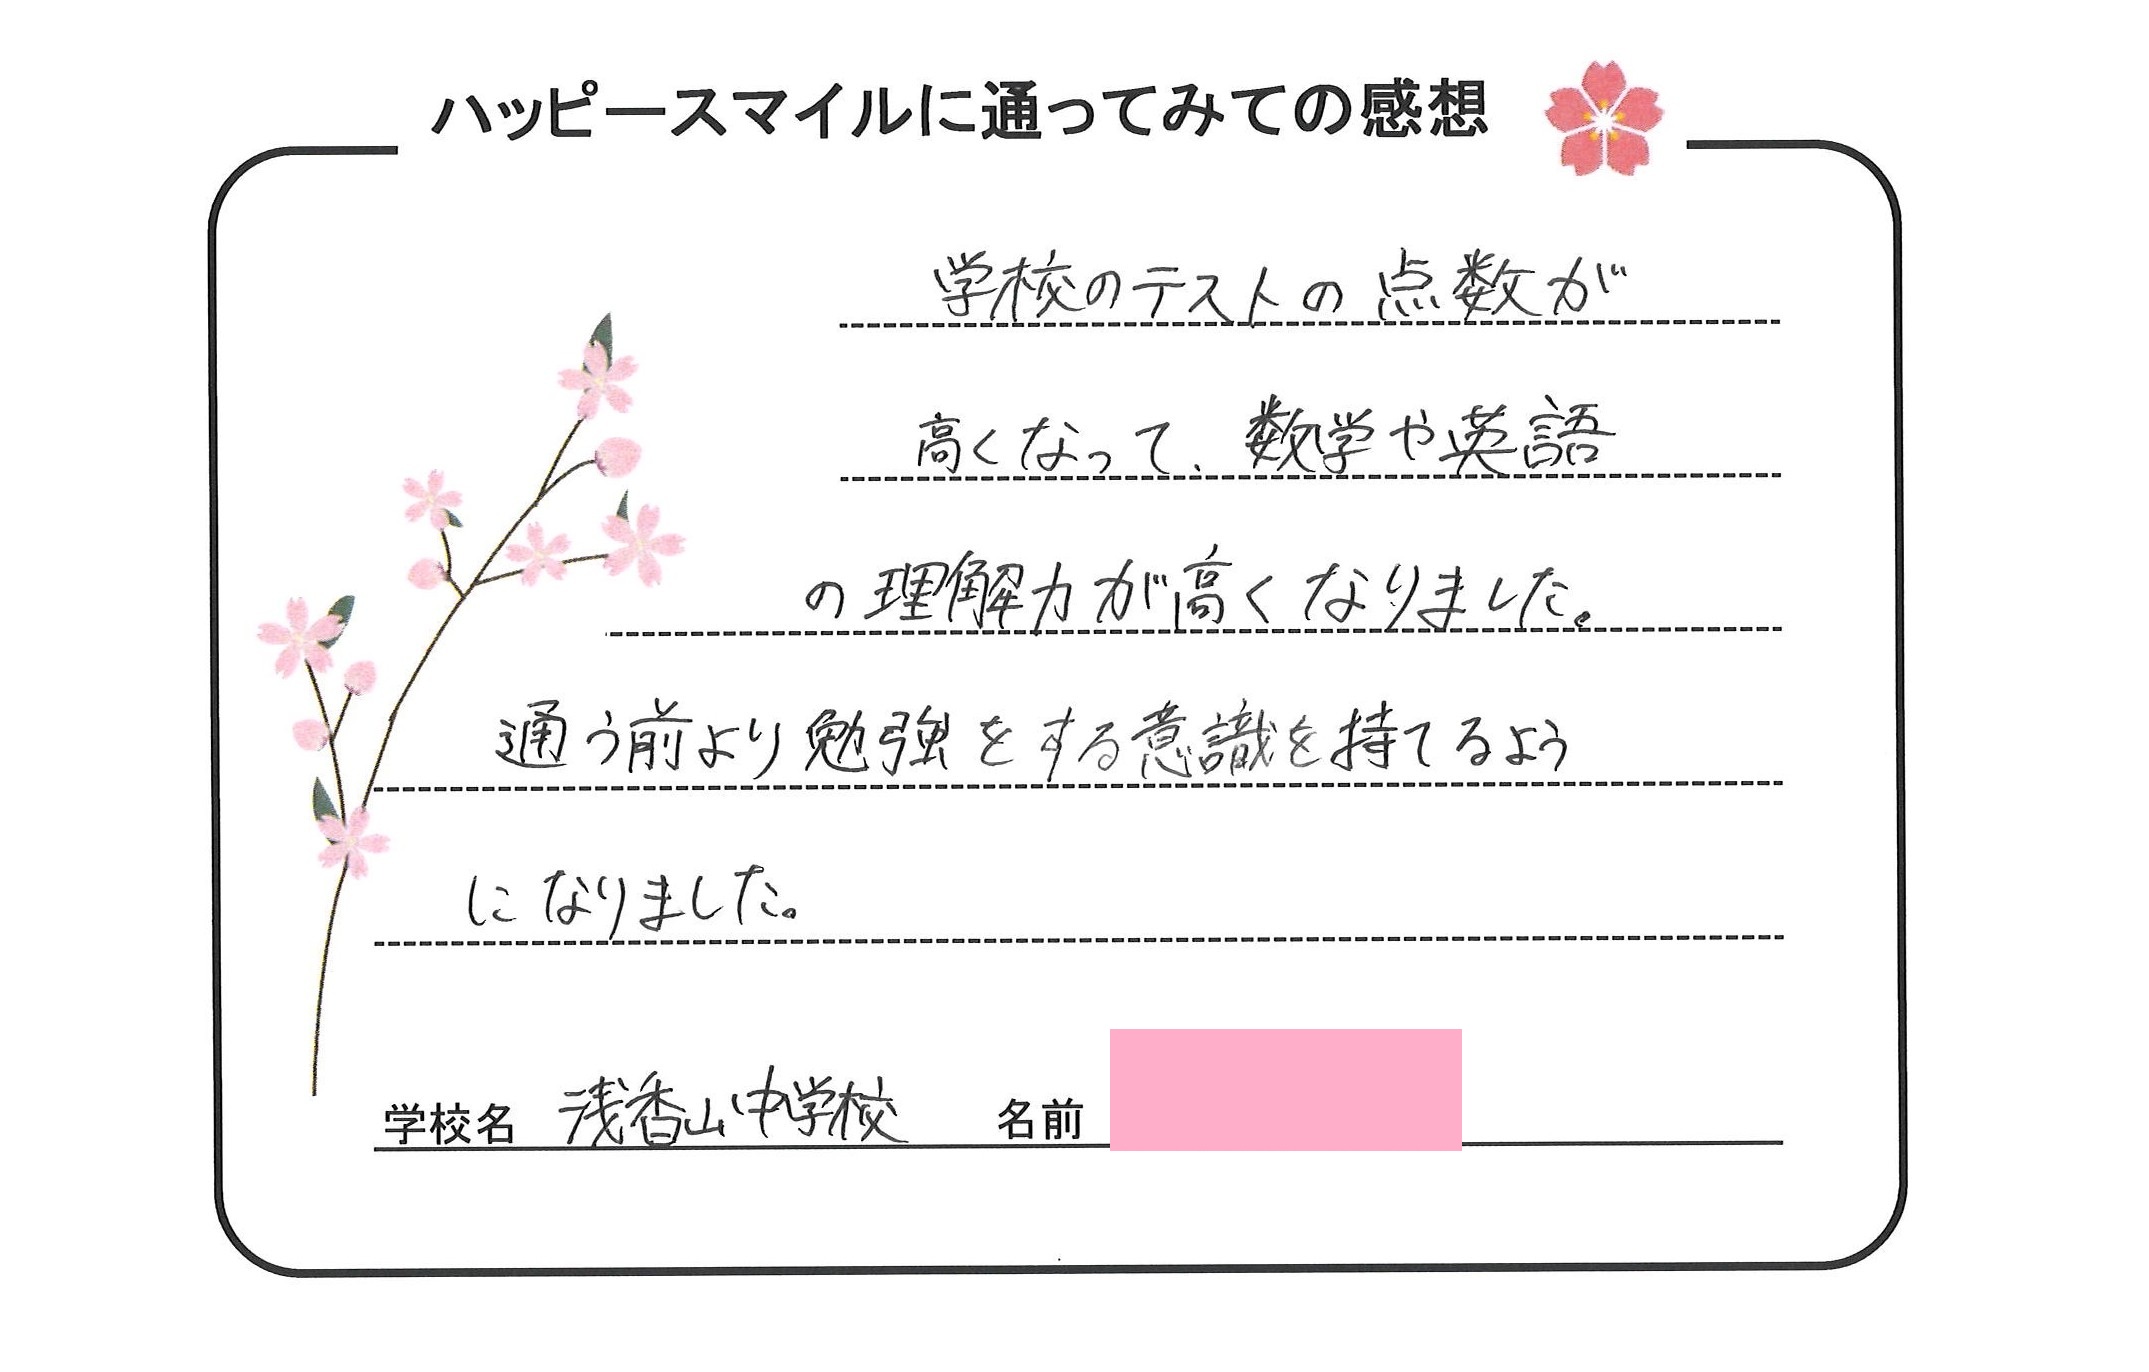 ハッピースマイルに通ってみての感想
学校のテストの点数が
高くなって、数学や英語
の理解力が高くなりました。
通う前より勉強をする意識を持てるよう
になりました。
学校名 浅香山中学校 名前